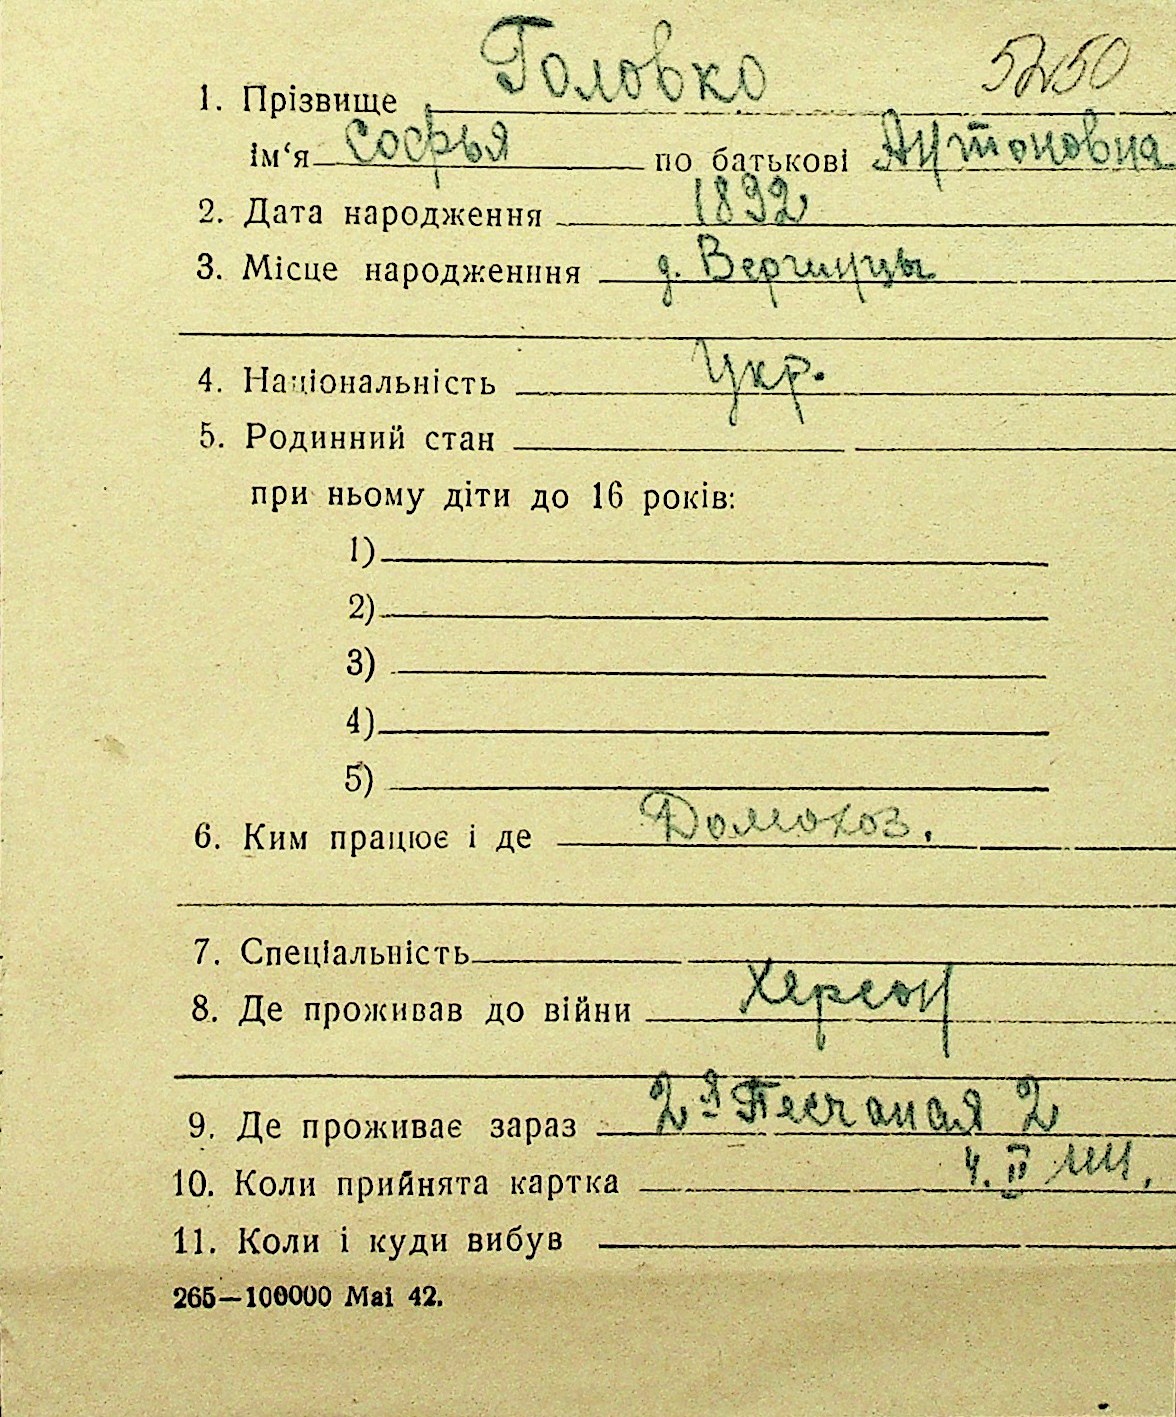 5250
1. Прізвище Головко
ім‘я Софья по батькові Антоновна
2. Дата народження 1892
3. Місце народженння д. Вергинцы
4. Національність Укр.
5. Родинний стан
при ньому діти до 16 років:
1)
2)
3)
4)
5)
6. Ким працює і де Домохоз.
7. Спеціальність
8. Де проживав до війни Херсон
9. Де проживає зараз 2я Песчаная 2
10. Коли прийнята картка 4. II
11. Коли і куди вибув
265—100000 Mai 42.